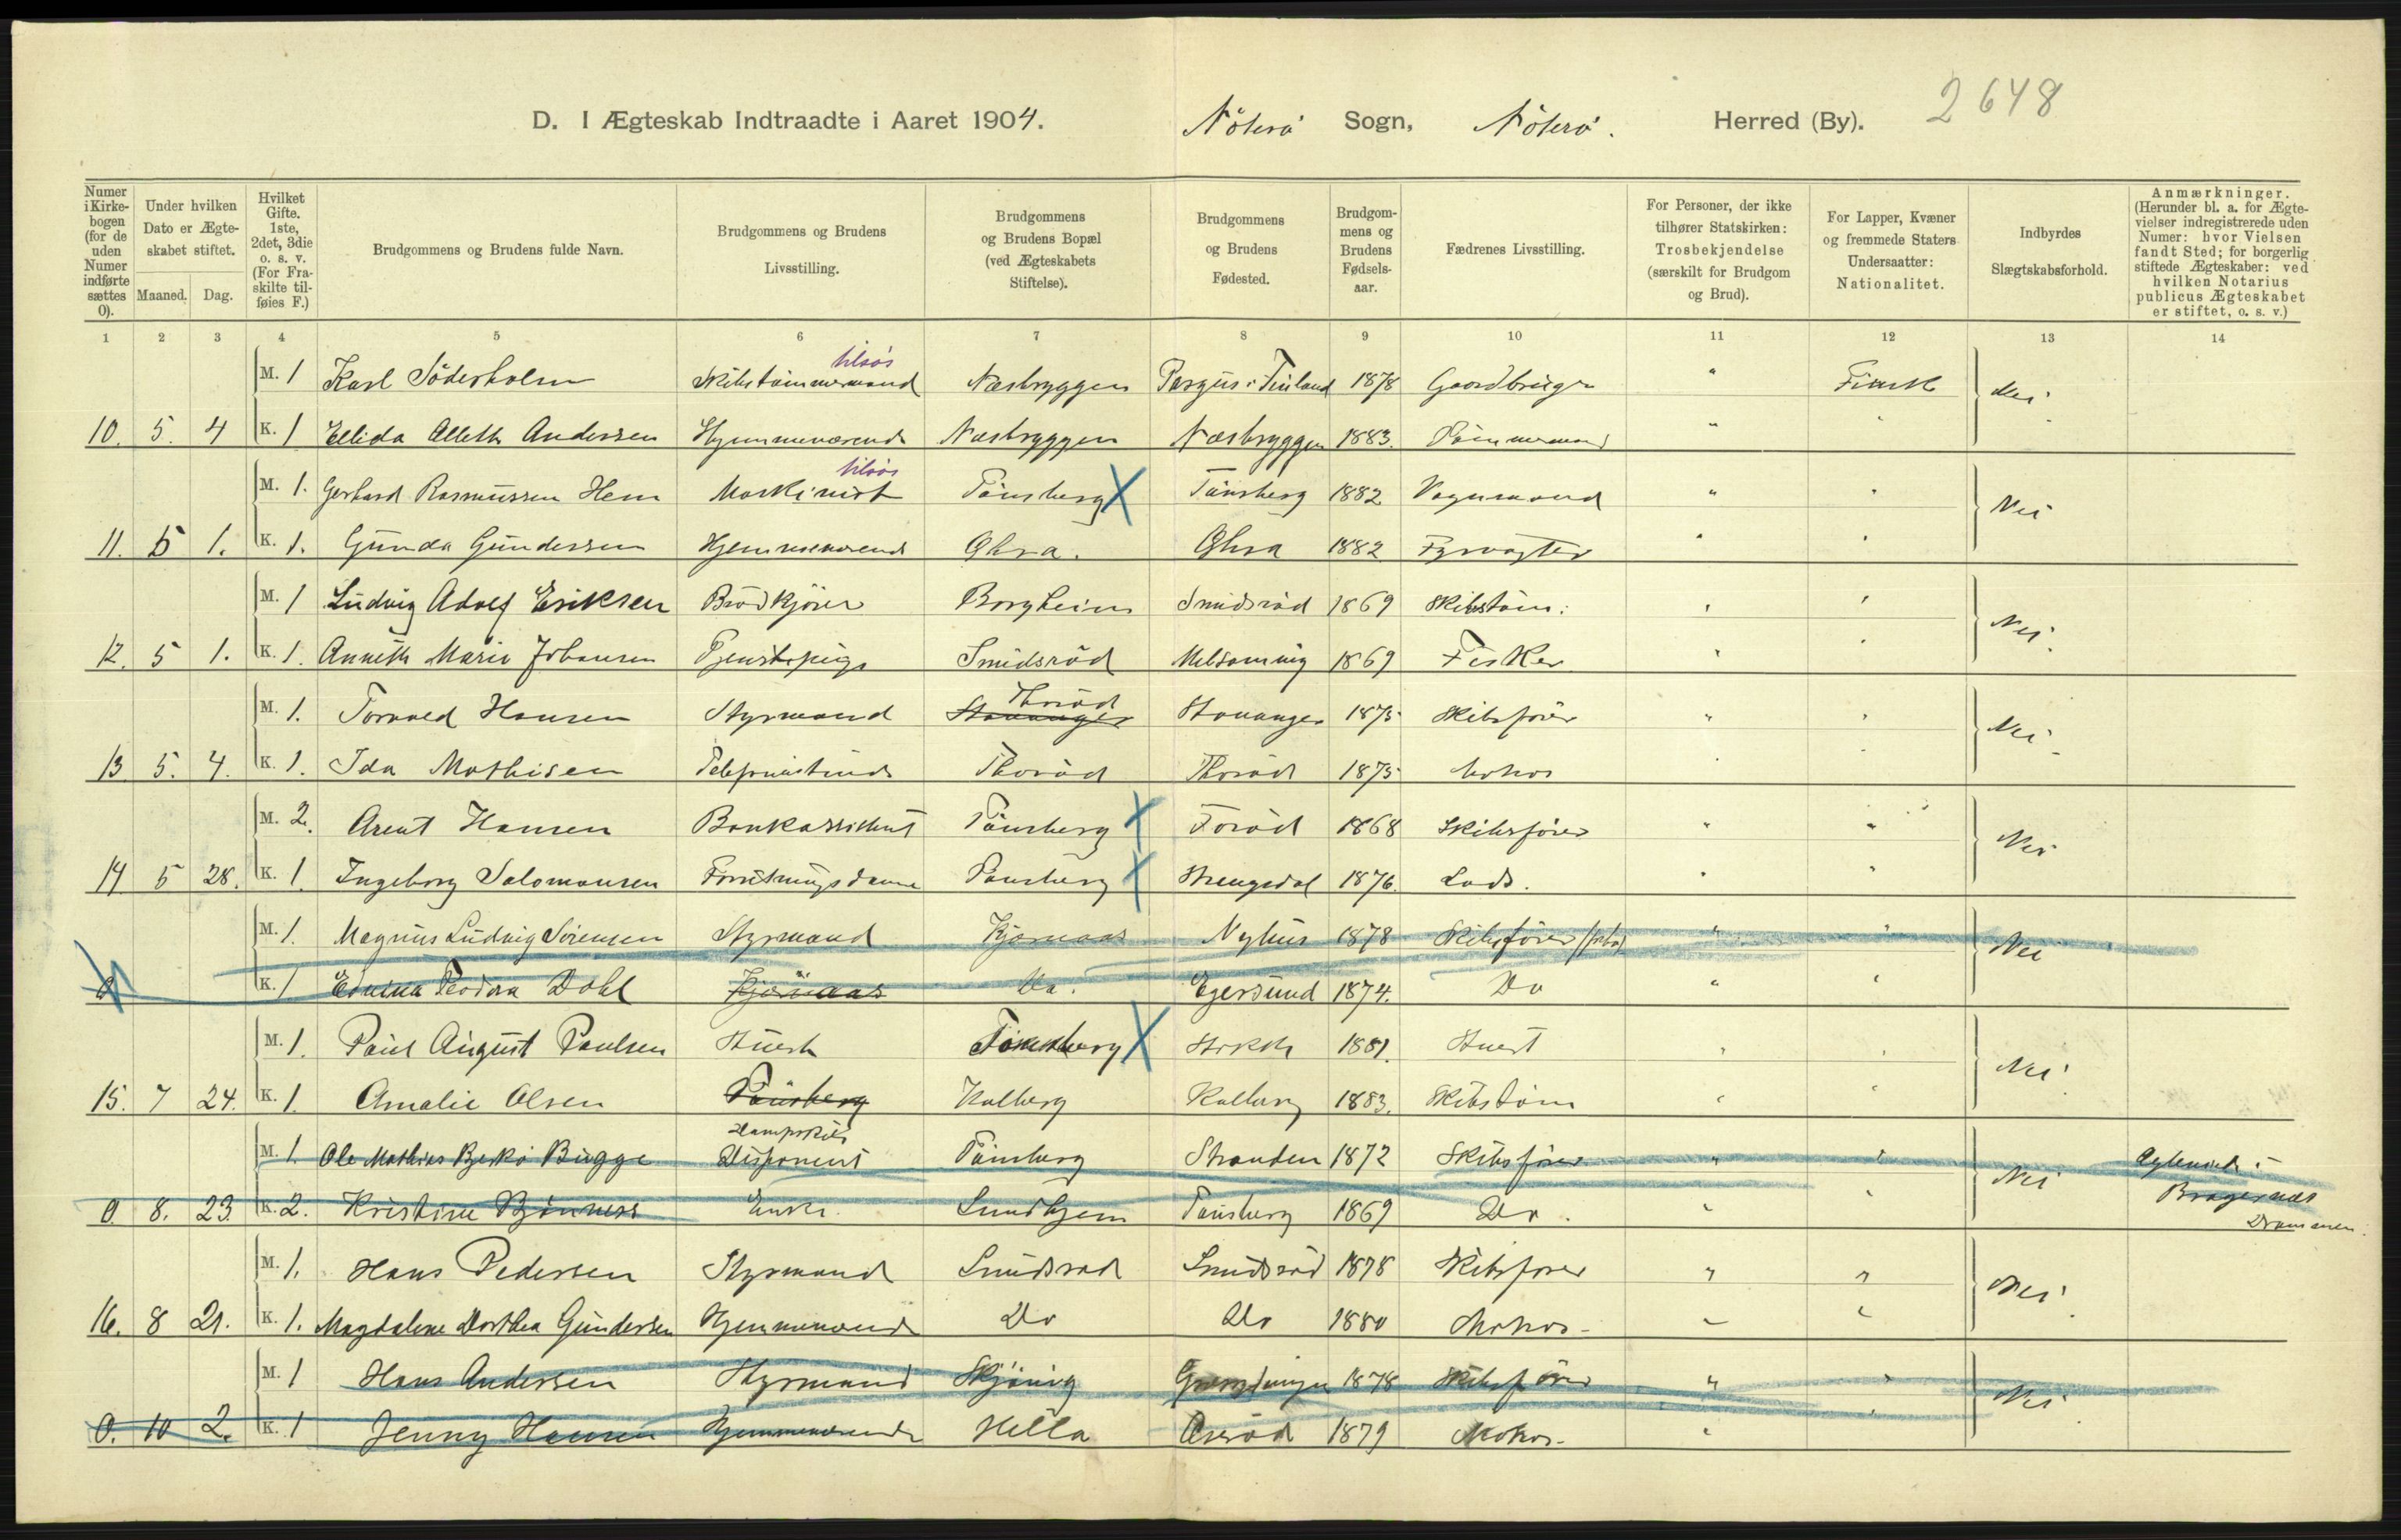 2648
D. I Ægteskab Indtraadte i Aaret 1904. Nøterø Sogn, Nøterø. Herred (By).
Numer i Kirkebogen (for de uden Numer indførte sættes 0).
Under hvilken Dato er Ægteskabet stiftet.
Maaned. Dag.
Hvilket Gifte. 1ste, 2det, 3die o. s. v. (For Fraskilte tilføies F.)
Brudgommens og Brudens fulde Navn.
Brudgommens og Brudens Livsstilling.
Brudgommens og Brudens Bopæl (ved Ægteskabets Stiftelse).
Brudgommens og Brudens Fødested.
Brudgommens og Brudens Fødselsaar.
Fædrenes Livsstilling.
For Personer, der ikke tilhører Statskirken: Trosbekjendelse (særskilt for Brudgom og Brud).
For Lapper, Kvæner og fremmede Staters Undersaatter: Nationalitet.
Indbyrdes Slægtskabsforhold.
Anmærkninger. (Herunder bl. a. for Ægtevielser indregistrerede uden Numer: hvor Vielsen fandt Sted; for borgerlig stiftede Ægteskaber: ved hvilken Notarius publicus Ægteskabet er stiftet, o. s. v.)
1 2 3 4 5 6 7 8 9 10 11 12 13 14
tilsøs
M. 1 Karl Söderholm Skibstømmermand Næsbryggen Pargus i Finland 1878 Gaardbruger " Finsk Nei
10. 5. 4 K. 1 Ellida Alleth Andersen Hjemmeværende Næsbryggen Næsbryggen 1883. Tømmermand "
tilsøs
M. 1. Gerhard Rasmussen Hem Maskinist Tønsberg X Tønsberg 1882 Vognmand " " Nei
11. 5 1. K. 1. Gunda Gundersen Hjemmeværende 1882 Fyrvogter " "
M. 1 Ludvig Adolf Eriksen Brødkjører Borgheim Smidsrød 1869 Skibstøm: " " Nei.
12. 5 1. K. 1. Anneth Marie Johansen Tjenestepige Smidsrød Melsomvig 1869 Fisker " "
Thorød
M. 1. Torvald Hansen Styrmand Stavanger Stavanger 1875 Skibsfører " " Nei
13. 5. 4. K. 1. Ida Mathisen Thorød Thorød 1875
M. 2. Arent Hansen Bankassistent Tønsberg X Torød 1868 Skibsfører " " Nei
14 5 28. K. 1. Ingeborg Salomonsen Forretningsdame Tønsberg X Strengsdal 1876. Lods. " "
M. 1. Magnus Ludvig Sørensen Styrmand Kjørnaas Nyhus 1878 Skibsfører " " Nei
0 K. 1 Edvina Teodora Dahl Kjørnaas Do. Egersund 1874. Do " "
M. 1. Paul August Paulsen Tønsberg X Stokke 1881. " " Nei
15. 7 24. K. 1. Amalie Olsen Tønsberg Kalberg Kalberg 1883. Skibstøm " "
Dampskibs
M. 1. Ole Mathias Bjerkø Bugge Disponent Tønsberg Stranden 1872 Skibsfører " " Nei Ægteviede i
0. 8. 23. K. 2. Kristine Bjønness Enke. Smidhjem Tønsberg 1869 Do. " " Bragernæs
Drammen.
M. 1. Hans Pedersen Styrmand Smidsrød Smidsrød 1878 Skibsfører " " Nei
16. 8 21. K. 1. Magdalene Dorthea Gundersen Hjemmeværende Do Do 1880 " "
M. 1 Hans Andersen Styrmand Skjønvig 1878 Skibsfører " " Nei
0. 10 2. K. 1 Jenny Hansen Hjemmeværende Hella Oserød 1879 "